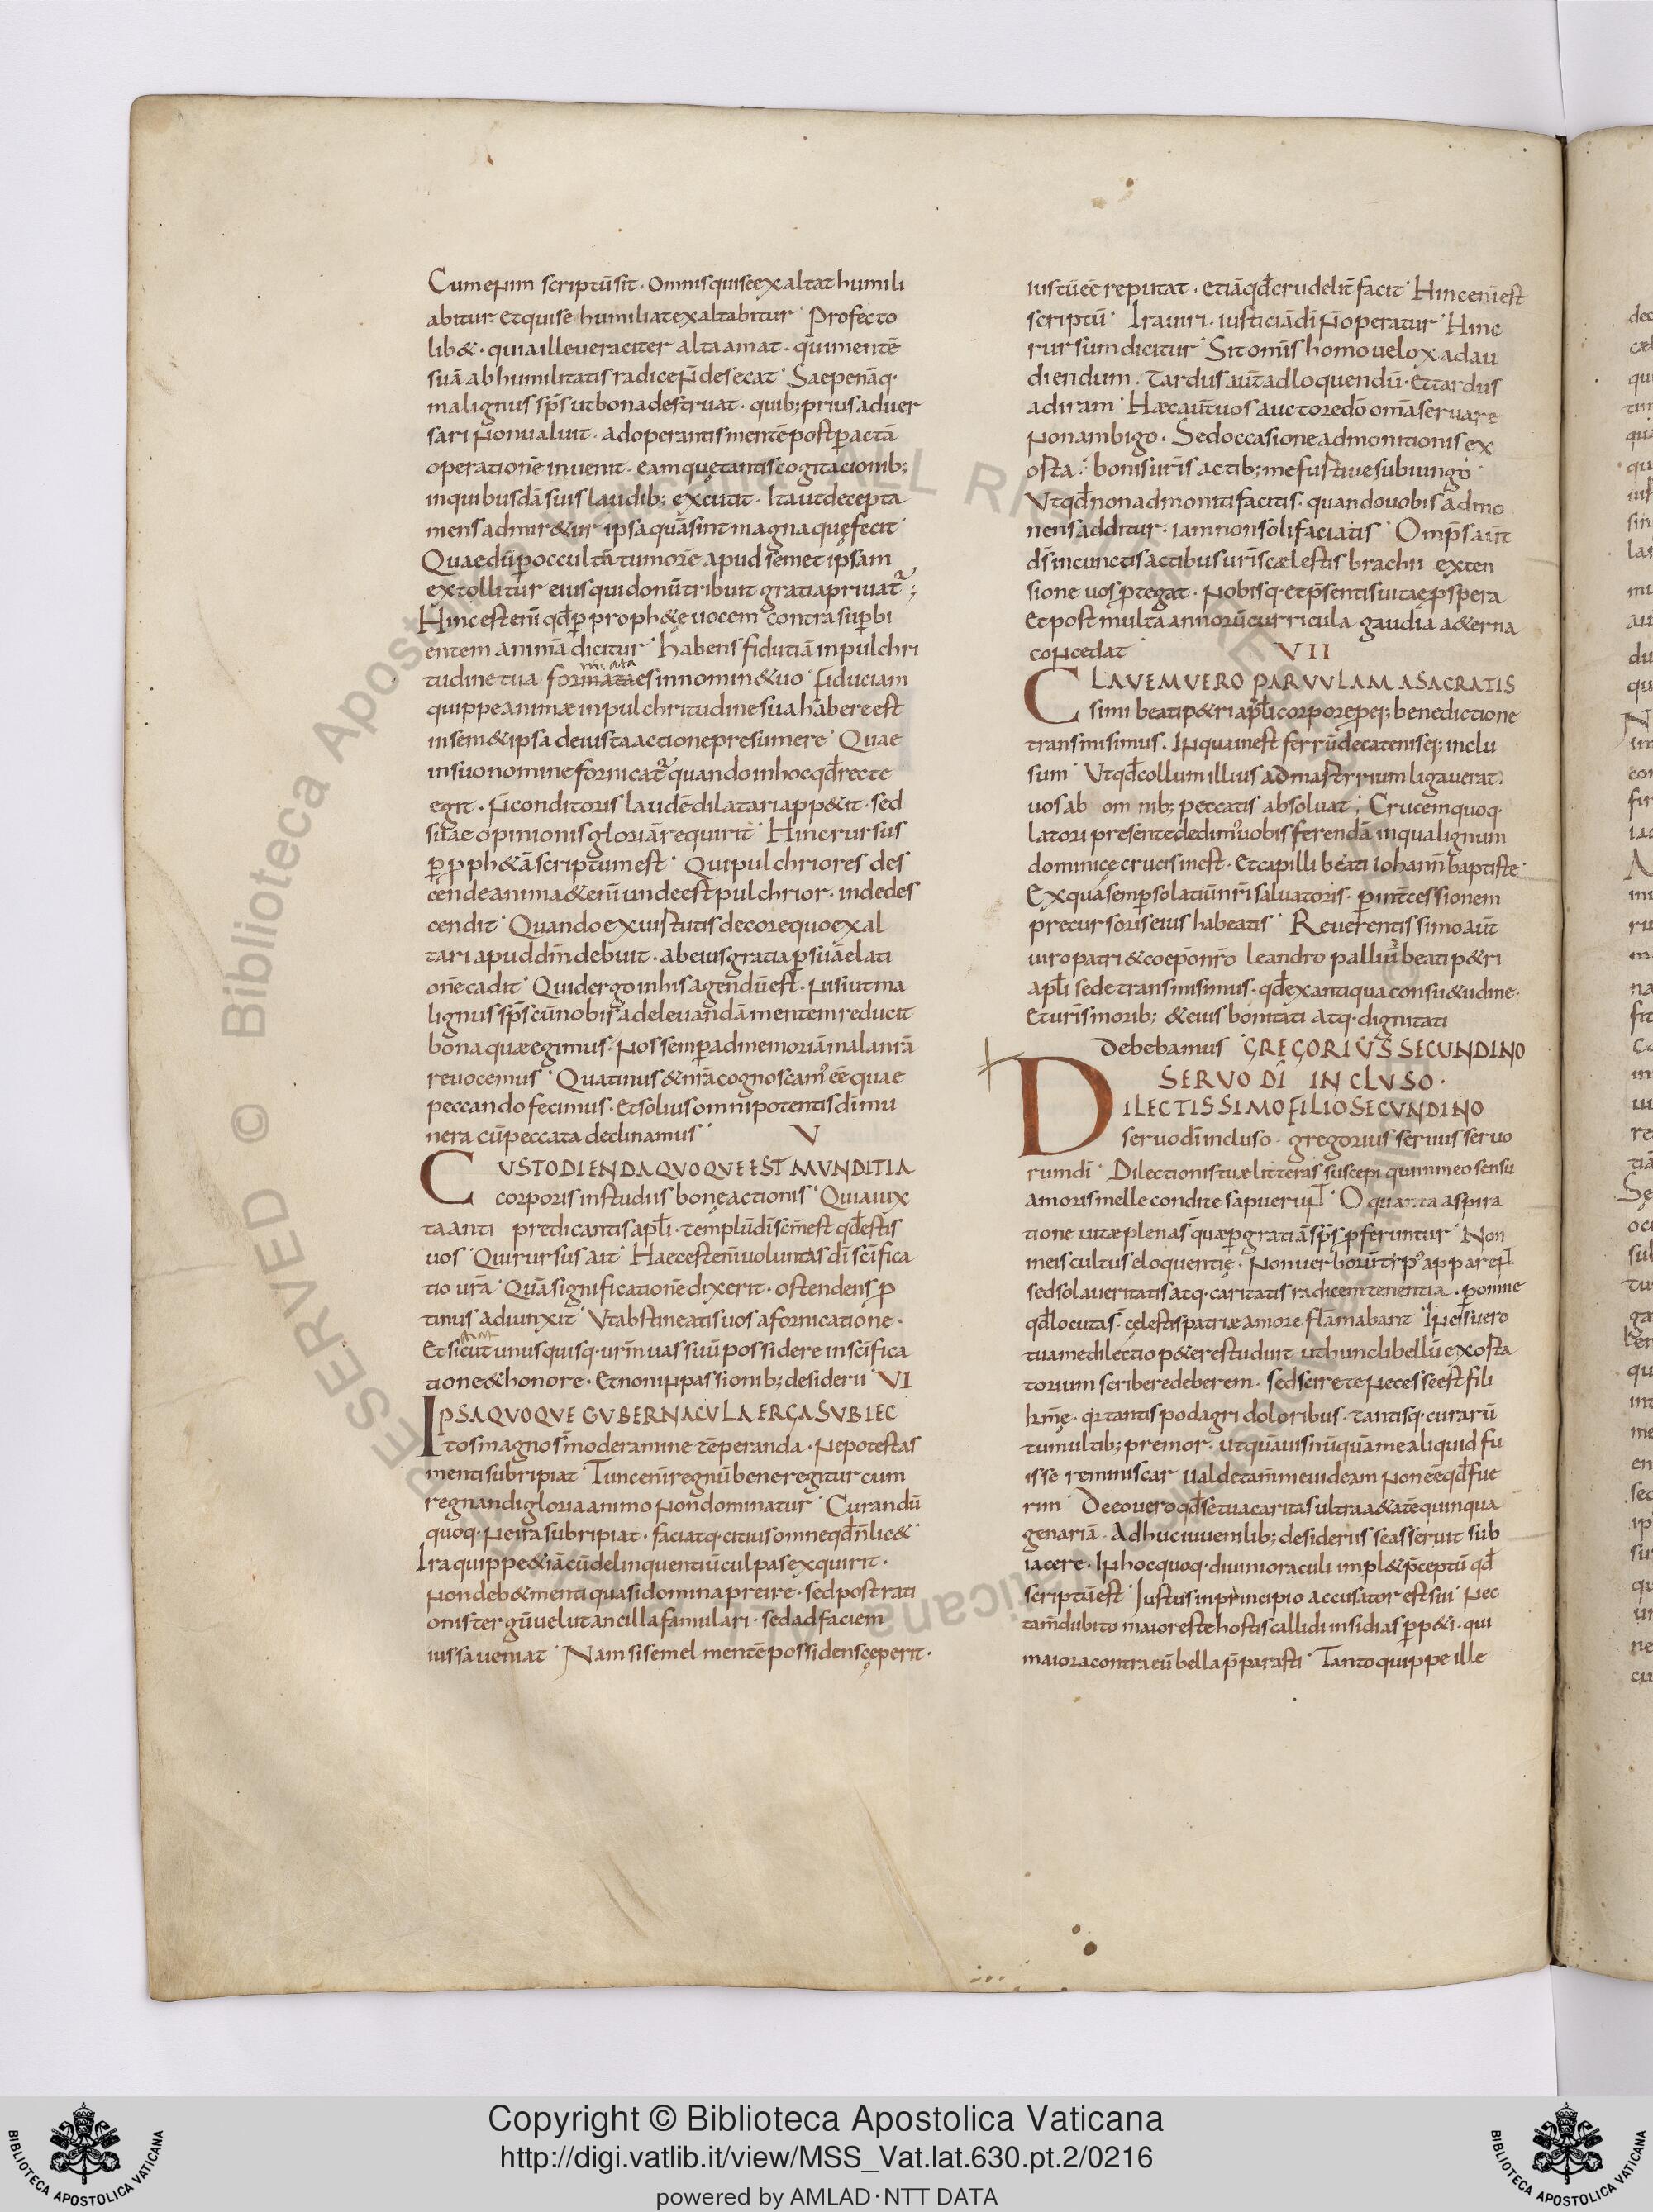 Cum enim scriptū sit · Omnis qui se exaltat humili
abitur · et qui se humiliat exaltabitur · Profecto
lib& · quia ille veraciter alta amat · qui mentē
suā ab humilitatis radice ñ desecat · Saepe nāq·
malignus sp̄s ut bona destruat · quib; prius adver
sari non valuit · ad operantis mentē post ꝑactā
operationē invenit · eamquę tantis cogitacionib;
in quibusdā suis laudib; excutit · Ita ut decepta
mens admir&ur ipsa quā sint magna quę fecit ·
Quae dū ꝑ occultū tumorē apud semet ipsam
extollitur eius qui donū tribuit gratia privat̄ ;
Hinc est enī qđ ꝑ proph&ę vocem contra suꝑbi
entem animā dicitur · habens fidutiā in pulchri
nicata
tudine tua formata es in nomin& uo · Fiduciam
quippe animæ in pulchritudine sua habere est
in sem&ipsa de iusta actione presumere · Quae
in suo nomine fornicat̄ quando in hoc qđ recte
egit · ñ conditoris laudē dilatari app&it · sed
suae opinionis gloriā requirit · Hinc rursus
ꝑ ꝓph&ā scriptum est · Qui pulchriores des
cende anima & enī unde est pulchrior · inde des
cendit · Quando ex virtutis decore quo exal
tari apud dm̄ debuit · ab eius gratia ꝑ suā elati
onē cadit · Quid ergo in his agendū est · nisi ut ma
lignus sp̄s cū nobis ad elevandā mentem reducit
bona quæ egimus · nos semꝑ ad memoriā mala nr̄a
revocemus · Quatinus & nr̄a cognoscam' eē quae
peccando fecimus · et solius omnipotentis dī mu
nera cū peccata declinamus · V
CUSTODIENDA QUOQUE EST MUNDITIA
corporis in studiis bonę actionis · Quia iux
ta anti predicantis apl̄i · templū dī scm̄ est qđ estis
vos · Qui rursus ait · Haec est enī voluntas dī sc̄ifica
tio vr̄a · Quā significationē dixerit · ostendens ꝓ
tinus adiunxit · Ut abstineatis vos a fornicatione ·
Et sicut unusquisq· vr̄m vas suū possidere in sc̄ifica
tione & honore · Et non in passionib; desiderii · VI
IPSA QUOQUE GUBERNACULA ERGA SUBIEC
tos magno s̄ moderamine tēperanda · Ne potestas
menti subripiat · Tunc enī regnū bene regitur cum
regnandi gloria animo non dominatur · Curandū
quoq· ne ira subripiat · faciatq· citius omne qđ ñ lic& ·
Ira quippe & iā cū delinquentiū culpas exquirit ·
non deb& menti quasi domina preire · sed post rati
onis tergū velut ancilla famulari · sed ad faciem
iussa veniat · Nam si semel mentē possidens cęperit ·
iustū eē reputat · etiā qđ crudelit̄ facit · Hinc enī est
scriptū · Ira viri · iusticiā dī ñ operatur · Hinc
rursum dicitur · Sit omīs homo velox ad au
diendum · Tardus aūt ad loquendū · et tardus
ad iram · Hæc aūt vos auctore dō om̄a servare
non ambigo · Sed occasione admonitionis ex
orta · bonis vr̄is actib; me furtive subiungo ·
Ut qđ non admoniti facitis · quando vobis admo
nens additur · iam non soli faciatis · Omp̄s aūt
ds̄ in cunctis actibus vr̄is cælestis brachii exten
sione vos ꝓtegat · nobisq· et p̄sentis vitæ ꝓspera
et post multa annorū curricula gaudia a&erna
concedat · VII
CLAVEM VERO PARVULAM A SACRATIS
simi beati p&ri apl̄i corpore ꝑ ei; benedictione
transmisimus · In qua inest ferrū de catenis ei; inclu
sum · Ut qđ collum illius ad martyrium ligaverat ·
vos ab omnib; peccatis absoluat ; Crucem quoq·
latori presente dedim' vobis ferendā in qua lignum
dominicę crucis inest · et capilli beati iohannī baptistę ·
Ex qua semꝑ solatiū nr̄i salvatoris · ꝑ int̄cessionem
precursoris eius habeatis · Reverentissimo aūt
viro patri & coepō nr̄o leandro palliū beati p&ri
apl̄i sede transmisimus · qđ ex antiqua consu&udine ·
et vr̄is morib; & eius bonitati atq· dignitati
debebamus · GREGORIUS SECUNDINO
SERVO DĪ INCLUSO ·
DILECTISSIMO FILIO SECUNDINO
servo dī incluso · gregorius servus servo
rum dī · Dilectionis tuæ litteras suscepi qui in meo sensu
amoris melle condite sapuerunt · O quanta aspira
tione vitæ plenas quæ ꝑ gratiā sp̄s ꝓferuntur · Non
in eis cultus eloquentię · Non verborū tip' apparent
sed sola veritatis atq· caritatis radicem tenentia · ꝑ omne
qđ locuta s̄ · cęlestis patriæ amore flāmabant · In eis vero
tua me dilectio p&ere studuit ut hunc libellū exorta
torium scribere deberem · sed scire te necesse est fili
km̄ę · qr̄ tantis podagri doloribus · tantisq· curarū
tumultib; premor · ut quāvis nūquā me aliquid fu
isse reminiscar valde tam̄ me videam non eē qđ fue
rim · De eo vero qđ se tua caritas ultra a&atē quinqua
genariā · Adhuc iuvenilib; desideriis seas servit sub
iacere · In hoc quoq· divini oraculi impl& p̄ceptū qđ
scriptū est · Iustus in principio accusator est sui · Nec
tam̄ dubito maiores te hostis callidi insidias ꝑp&i · qui
maiora contra eū bella p̄parasti · Tanto quippe ille
Copyright © Biblioteca Apostolica Vaticana
http://digi.vatlib.it/view/MSS_Vat.lat.630.pt.2/0216
powered by AMLAD·NTT DATA
BIBLIOTECA APOSTOLICA VATICANA
BIBLIOTECA APOSTOLICA VATICANA